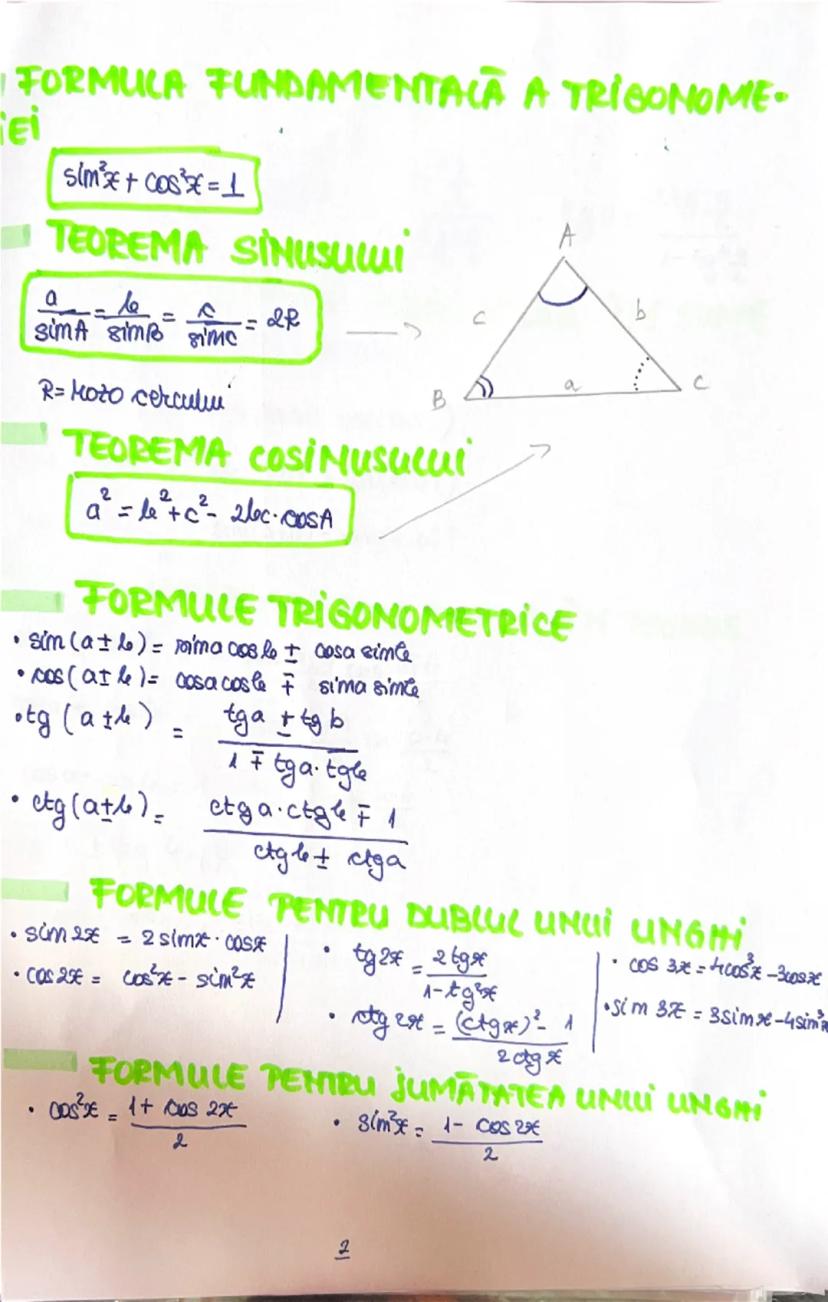 FORMULA FUNDAMENTALĂ A TRIGONOME-
IEI
sin²x + cos²x = 1
TEOREMA SINUSULUI
a/sinA = b/sinB = c/sinC = 2R
R = raza cercului
A
c
b
B
a
C
TEOREMA COSINUSULUI
a² = b² + c² - 2bc · cosA
FORMULE TRIGONOMETRICE
• sin(a ± b) = sina cosb ± cosa sinb
• cos(a ± b) = cosa cosb ∓ sina sinb
• tg(a ± b) = (tga ± tgb)/(1 ∓ tga · tgb)
• ctg(a ± b) = (ctga · ctgb ∓ 1)/(ctgb ± ctga)
FORMULE PENTRU DUBLUL UNUI UNGHI
• sin2x = 2sinx · cosx
• cos2x = cos²x - sin²x
• tg2x = 2tgx/(1 - tg²x)
• ctg2x = ((ctgx)² - 1)/(2ctgx)
• cos3x = 4cos³x - 3cosx
• sin3x = 3sinx - 4sin³x
FORMULE PENTRU JUMĂTATEA UNUI UNGHI
• cos²x = (1 + cos2x)/2
• sin²x = (1 - cos2x)/2
2